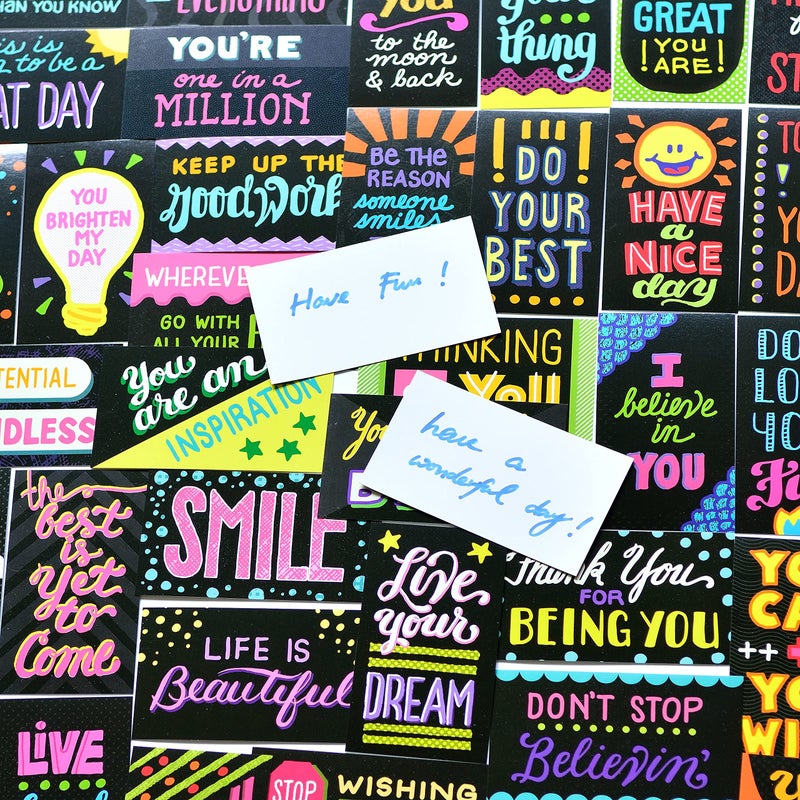 THAN YOU KNOW
EVERYTHING
You
to the
moon
& back
your
thing
GREAT
YOU
ARE!
this is
to be a
AT DAY
YOU'RE
one in a
MILLION
YOU
BRIGHTEN
MY
DAY
KEEP UP THE
good work
BE THE
REASON
someone
smiles
DO
YOUR
BEST
HAVE
a
NICE
day
WHEREVE
GO WITH
ALL YOUR
Have Fun!
TENTIAL
NDLESS
You
are an
INSPIRATION
THINKING
You
have a
wonderful day!
I
believe
in
YOU
DO
LO
YO
the
best
is
yet
to
Come
SMILE
Live
your
DREAM
Thank You
FOR
BEING YOU
YO
CA
++
YO
WI
LIFE IS
Beautiful
DON'T STOP
Believin'
LIVE
STOP
WISHING